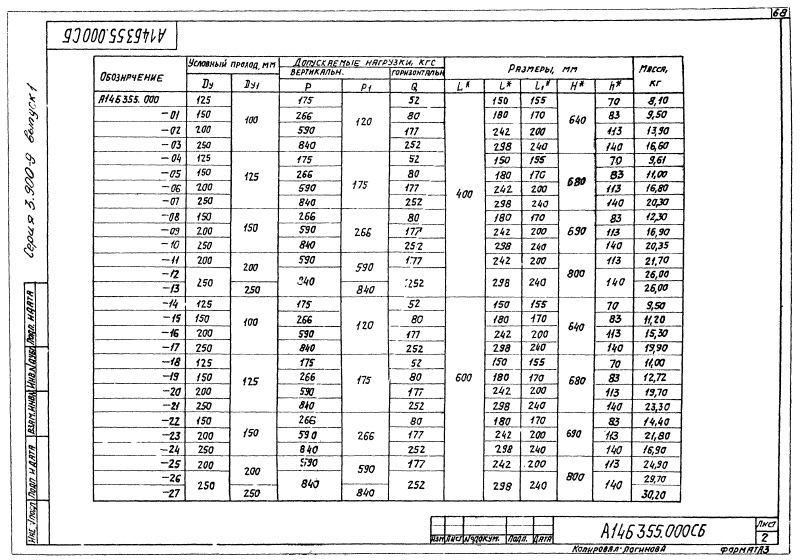 68
А14Б355.000СБ
Серия 3.900-9 выпуск 1
Обозначение | Условный проход, мм | Допускаемые нагрузки, кгс | Размеры, мм | Масса, кг
вертикальн. | горизонтальн
Dу | Dу1 | P | P1 | Q | L* | l* | l1* | H* | h*
А14Б355.000 | 125 | 100 | 175 | 120 | 52 | 400 | 150 | 155 | 640 | 70 | 8,10
-01 | 150 | 266 | 80 | 180 | 170 | 83 | 9,50
-02 | 200 | 590 | 177 | 242 | 200 | 113 | 13,90
-03 | 250 | 840 | 252 | 298 | 240 | 140 | 16,60
-04 | 125 | 125 | 175 | 175 | 52 | 150 | 155 | 680 | 70 | 9,61
-05 | 150 | 266 | 80 | 180 | 170 | 83 | 11,00
-06 | 200 | 590 | 177 | 242 | 200 | 113 | 16,80
-07 | 250 | 840 | 252 | 298 | 240 | 140 | 20,30
-08 | 150 | 150 | 266 | 266 | 80 | 180 | 170 | 690 | 83 | 12,30
-09 | 200 | 590 | 177 | 242 | 200 | 113 | 16,90
-10 | 250 | 840 | 252 | 298 | 240 | 140 | 20,35
-11 | 200 | 200 | 590 | 590 | 177 | 242 | 200 | 800 | 113 | 21,70
-12 | 250 | 840 | 252 | 298 | 240 | 140 | 26,00
-13 | 250 | 840 | 26,00
-14 | 125 | 100 | 175 | 120 | 52 | 600 | 150 | 155 | 640 | 70 | 9,50
-15 | 150 | 266 | 80 | 180 | 170 | 83 | 11,20
-16 | 200 | 590 | 177 | 242 | 200 | 113 | 15,30
-17 | 250 | 840 | 252 | 298 | 240 | 140 | 19,90
-18 | 125 | 125 | 175 | 175 | 52 | 150 | 155 | 680 | 70 | 11,00
-19 | 150 | 266 | 80 | 180 | 170 | 83 | 12,72
-20 | 200 | 590 | 177 | 242 | 200 | 113 | 19,70
-21 | 250 | 840 | 252 | 298 | 240 | 140 | 23,30
-22 | 150 | 150 | 266 | 266 | 80 | 180 | 170 | 690 | 83 | 14,40
-23 | 200 | 590 | 177 | 242 | 200 | 113 | 21,80
-24 | 250 | 840 | 252 | 298 | 240 | 140 | 16,90
-25 | 200 | 200 | 590 | 590 | 177 | 242 | 200 | 800 | 113 | 24,90
-26 | 250 | 840 | 252 | 298 | 240 | 140 | 29,70
-27 | 250 | 840 | 30,20
Изм Лист №докум. Подп. Дата
А14Б355.000СБ
Лист
2
Копировал-Логинова Формат А3
Подп. и дата
Взам.инв№
Подп. и дата